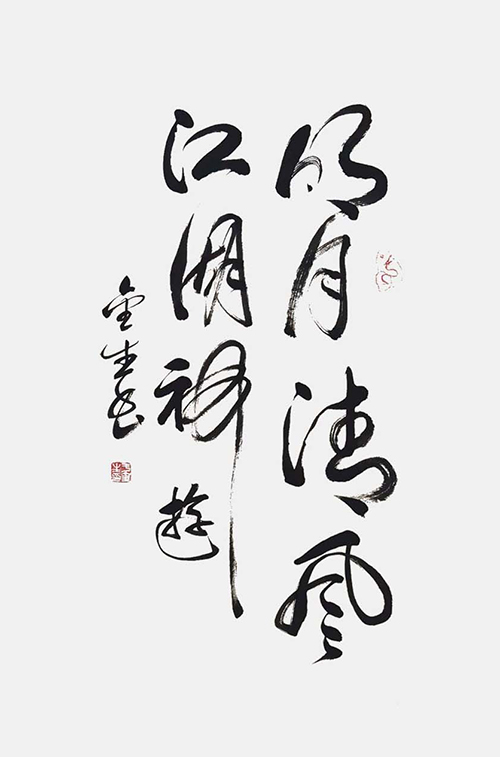 明月清风
江湖神遊
金生书